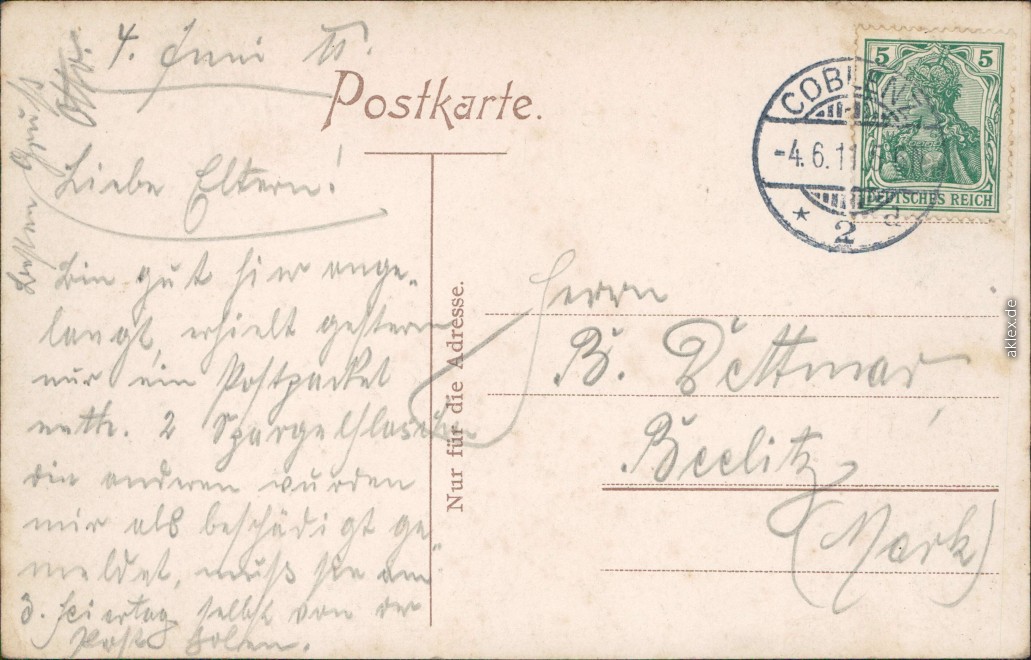 4. Juni 11.
Postkarte.
Liebe Eltern!
Bin gut hier ange-
langt, erhielt gestern
nur ein Postpacket
enth. 2 Spargelflaschen
die anderen wurden
mir als beschädigt ge-
meldet, muß sie am
3. Feiertag selbst von der
Post holen.
Besten Gruß
Otto.
Nur für die Adresse.
COBLENZ
-4.6.11.
* 2 a
5 5
DEUTSCHES REICH
Herrn
B. Dettmar
Beelitz
(Mark)
aklex.de